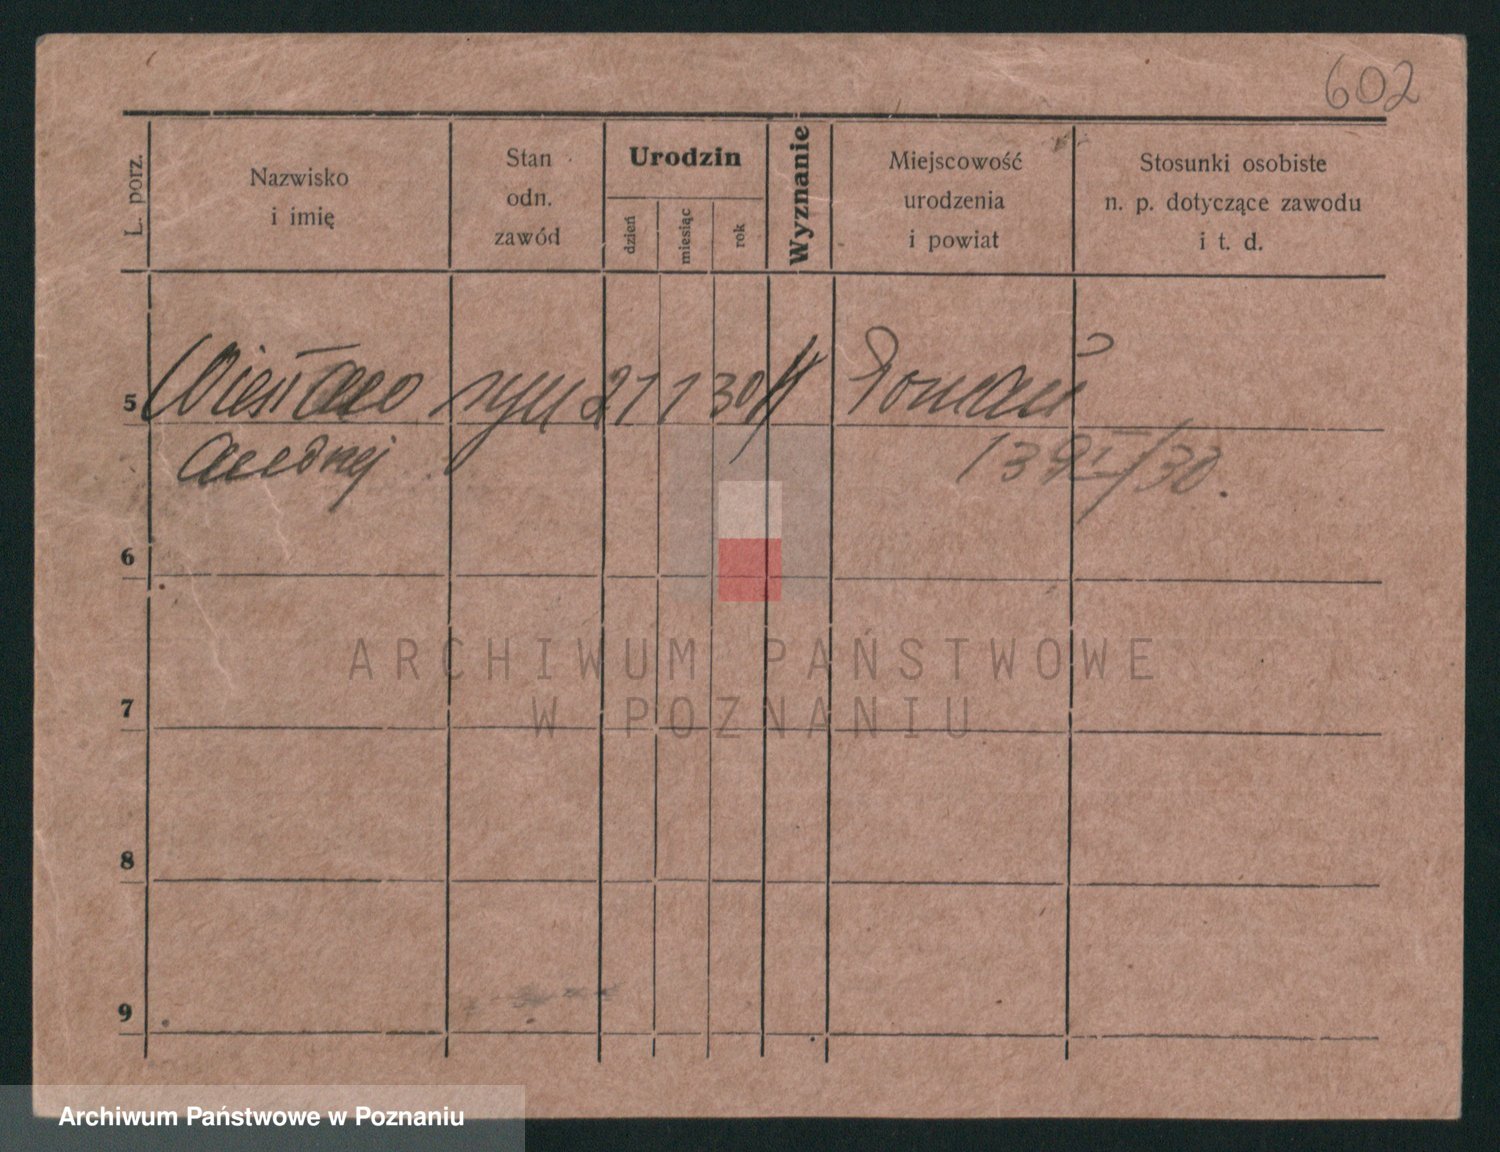 602
L. porz.
Nazwisko
i imię
Stan
odn.
zawód
Urodzin
dzień
miesiąc
rok
Wyznanie
Miejscowość
urodzenia
i powiat
Stosunki osobiste
n. p. dotyczące zawodu
i t. d.
5 Wiesław syn 21 1 30 Poznań
Andrzej
139 I/30.
6
ARCHIWUM PAŃSTWOWE
W POZNANIU
7
8
9
Archiwum Państwowe w Poznaniu